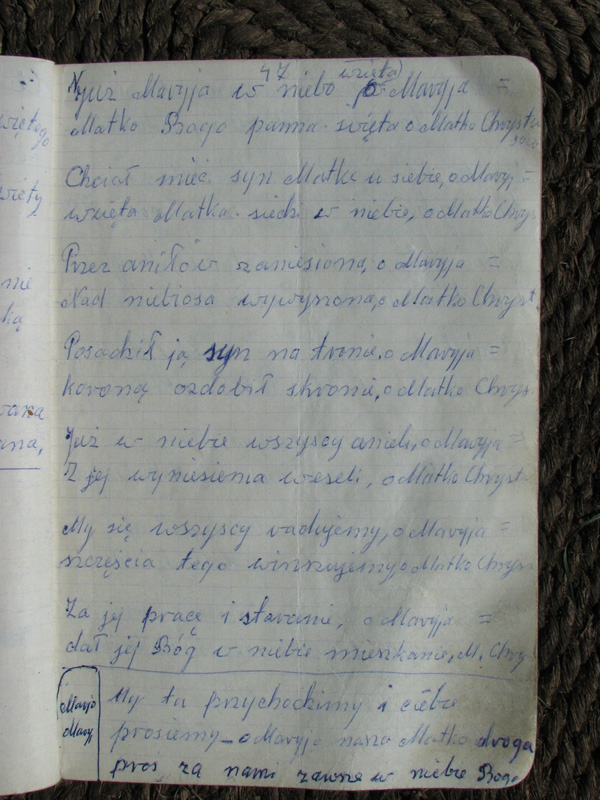 47 wzięta
Już Maryja w niebo o Maryja =
Matko Boga panna święta o Matko Chrystu
sowa
Chciał mieć syn Matkę u siebie, o Maryj =
wzięta Matka siedzi w niebie, o Matko Chrys
Przez aniłów zaniesiona, o Maryja =
Nad niebiosa wywyszona, o Matko Chryst
Posadził ją syn na tronie, o Maryja =
koroną ozdobił skronie, o Matko Chrys
Już w niebie wszyscy anieli, o Maryja =
Z jej wyniesienia weseli, o Matko Chryst
My się wszyscy radujemy, o Maryja =
szczęścia tego winszujemy, o Matko Chrys
Za jej pracę i staranie, o Maryja =
dał jej Bóg w niebie mieszkanie, M. Chry
My tu przychodzimy i ciebie
Maryjo
prosiemy - o Maryjo nasza Matko droga
Mary
proś za nami zawsze w niebie Boga
więtego
więty
nie
ką
ana,